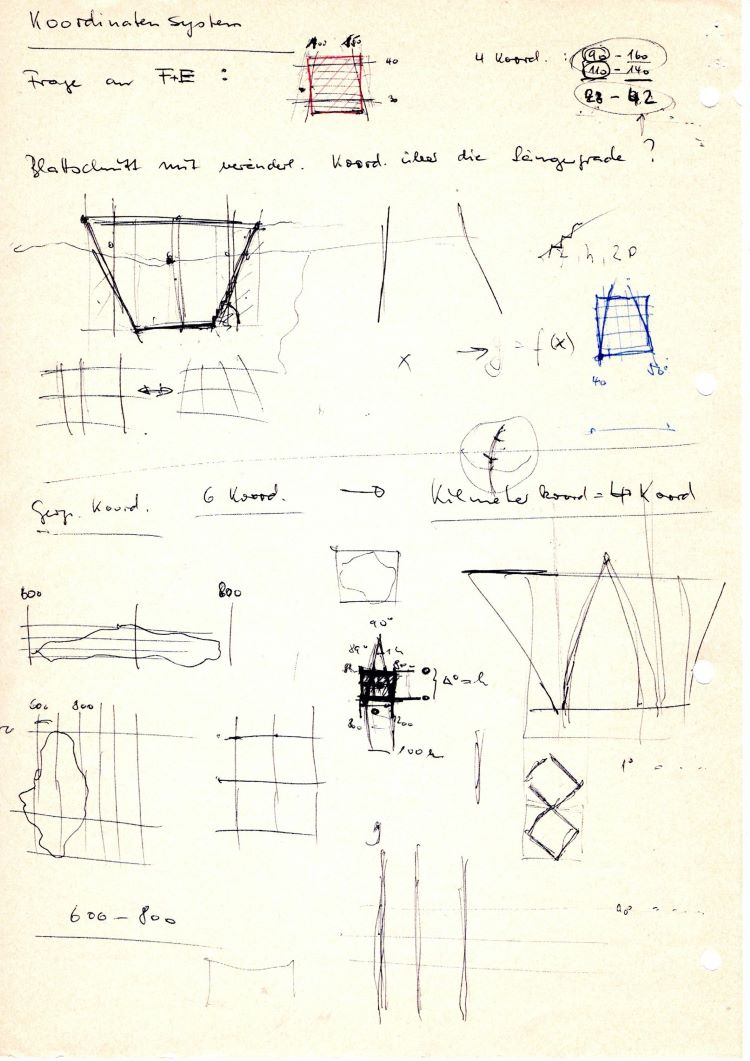 Koordinaten System
100 50
40
30
Frage an F+E :
4 Koord. : 90 - 160
110 - 140
28 - 42
?
Blattschnitt mit veränderl. Koord. über die Längengrade ?
12, h, 20
x → y = f(x)
40 50
Geogr. Koord. G Koord. → Kilometer koord = 4 Koord
600 800
90°
89°
Δ° = h
800 1200
100 h
600 800
1° = . . .
y
600 - 800